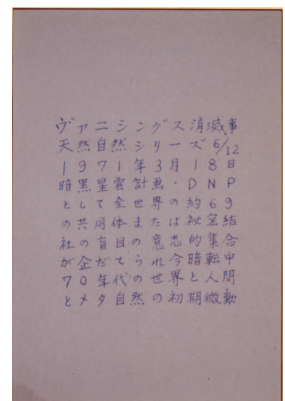 ヴァニシングス消滅事
天然自然シリーズ6/12
1971年3月18日
暗黒星雲計画・DNP
として全世界の約69
の共同体またはお祕密結
社の盲目の意志的集合
が企だてられ今暗転中
70年代の世界と人間
とメタ自然の初期微動